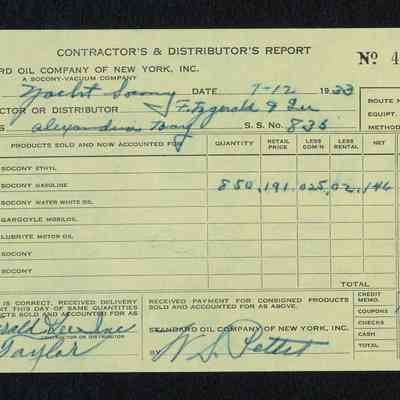 CONTRACTOR'S & DISTRIBUTOR'S REPORT
Nº 4
ARD OIL COMPANY OF NEW YORK, INC.
A SOCONY-VACUUM COMPANY
Yacht Socony DATE 7-12 1933
ROUTE N
CTOR OR DISTRIBUTOR Fitzgerald & Lee
EQUIPT.
S Alexandria Bay S. S. No. 835
METHOD
PRODUCTS SOLD AND NOW ACCOUNTED FOR QUANTITY RETAIL PRICE LESS COM'N LESS RENTAL NET
SOCONY ETHYL
SOCONY GASOLINE 850 .191 .025 .02 .146
SOCONY WATER WHITE OIL
GARGOYLE MOBILOIL
LUBRITE MOTOR OIL
SOCONY
SOCONY
TOTAL
IS CORRECT, RECEIVED DELIVERY
THIS DAY OF SAME QUANTITIES
DUCTS SOLD AND ACCOUNTED FOR AS
erald Lee Inc
CONTRACTOR OR DISTRIBUTOR
Taylor
RECEIVED PAYMENT FOR CONSIGNED PRODUCTS
SOLD AND ACCOUNTED FOR AS ABOVE.
STANDARD OIL COMPANY OF NEW YORK, INC.
BY W. S. Pettit
CREDIT MEMO.
COUPONS
CHECKS
CASH
TOTAL